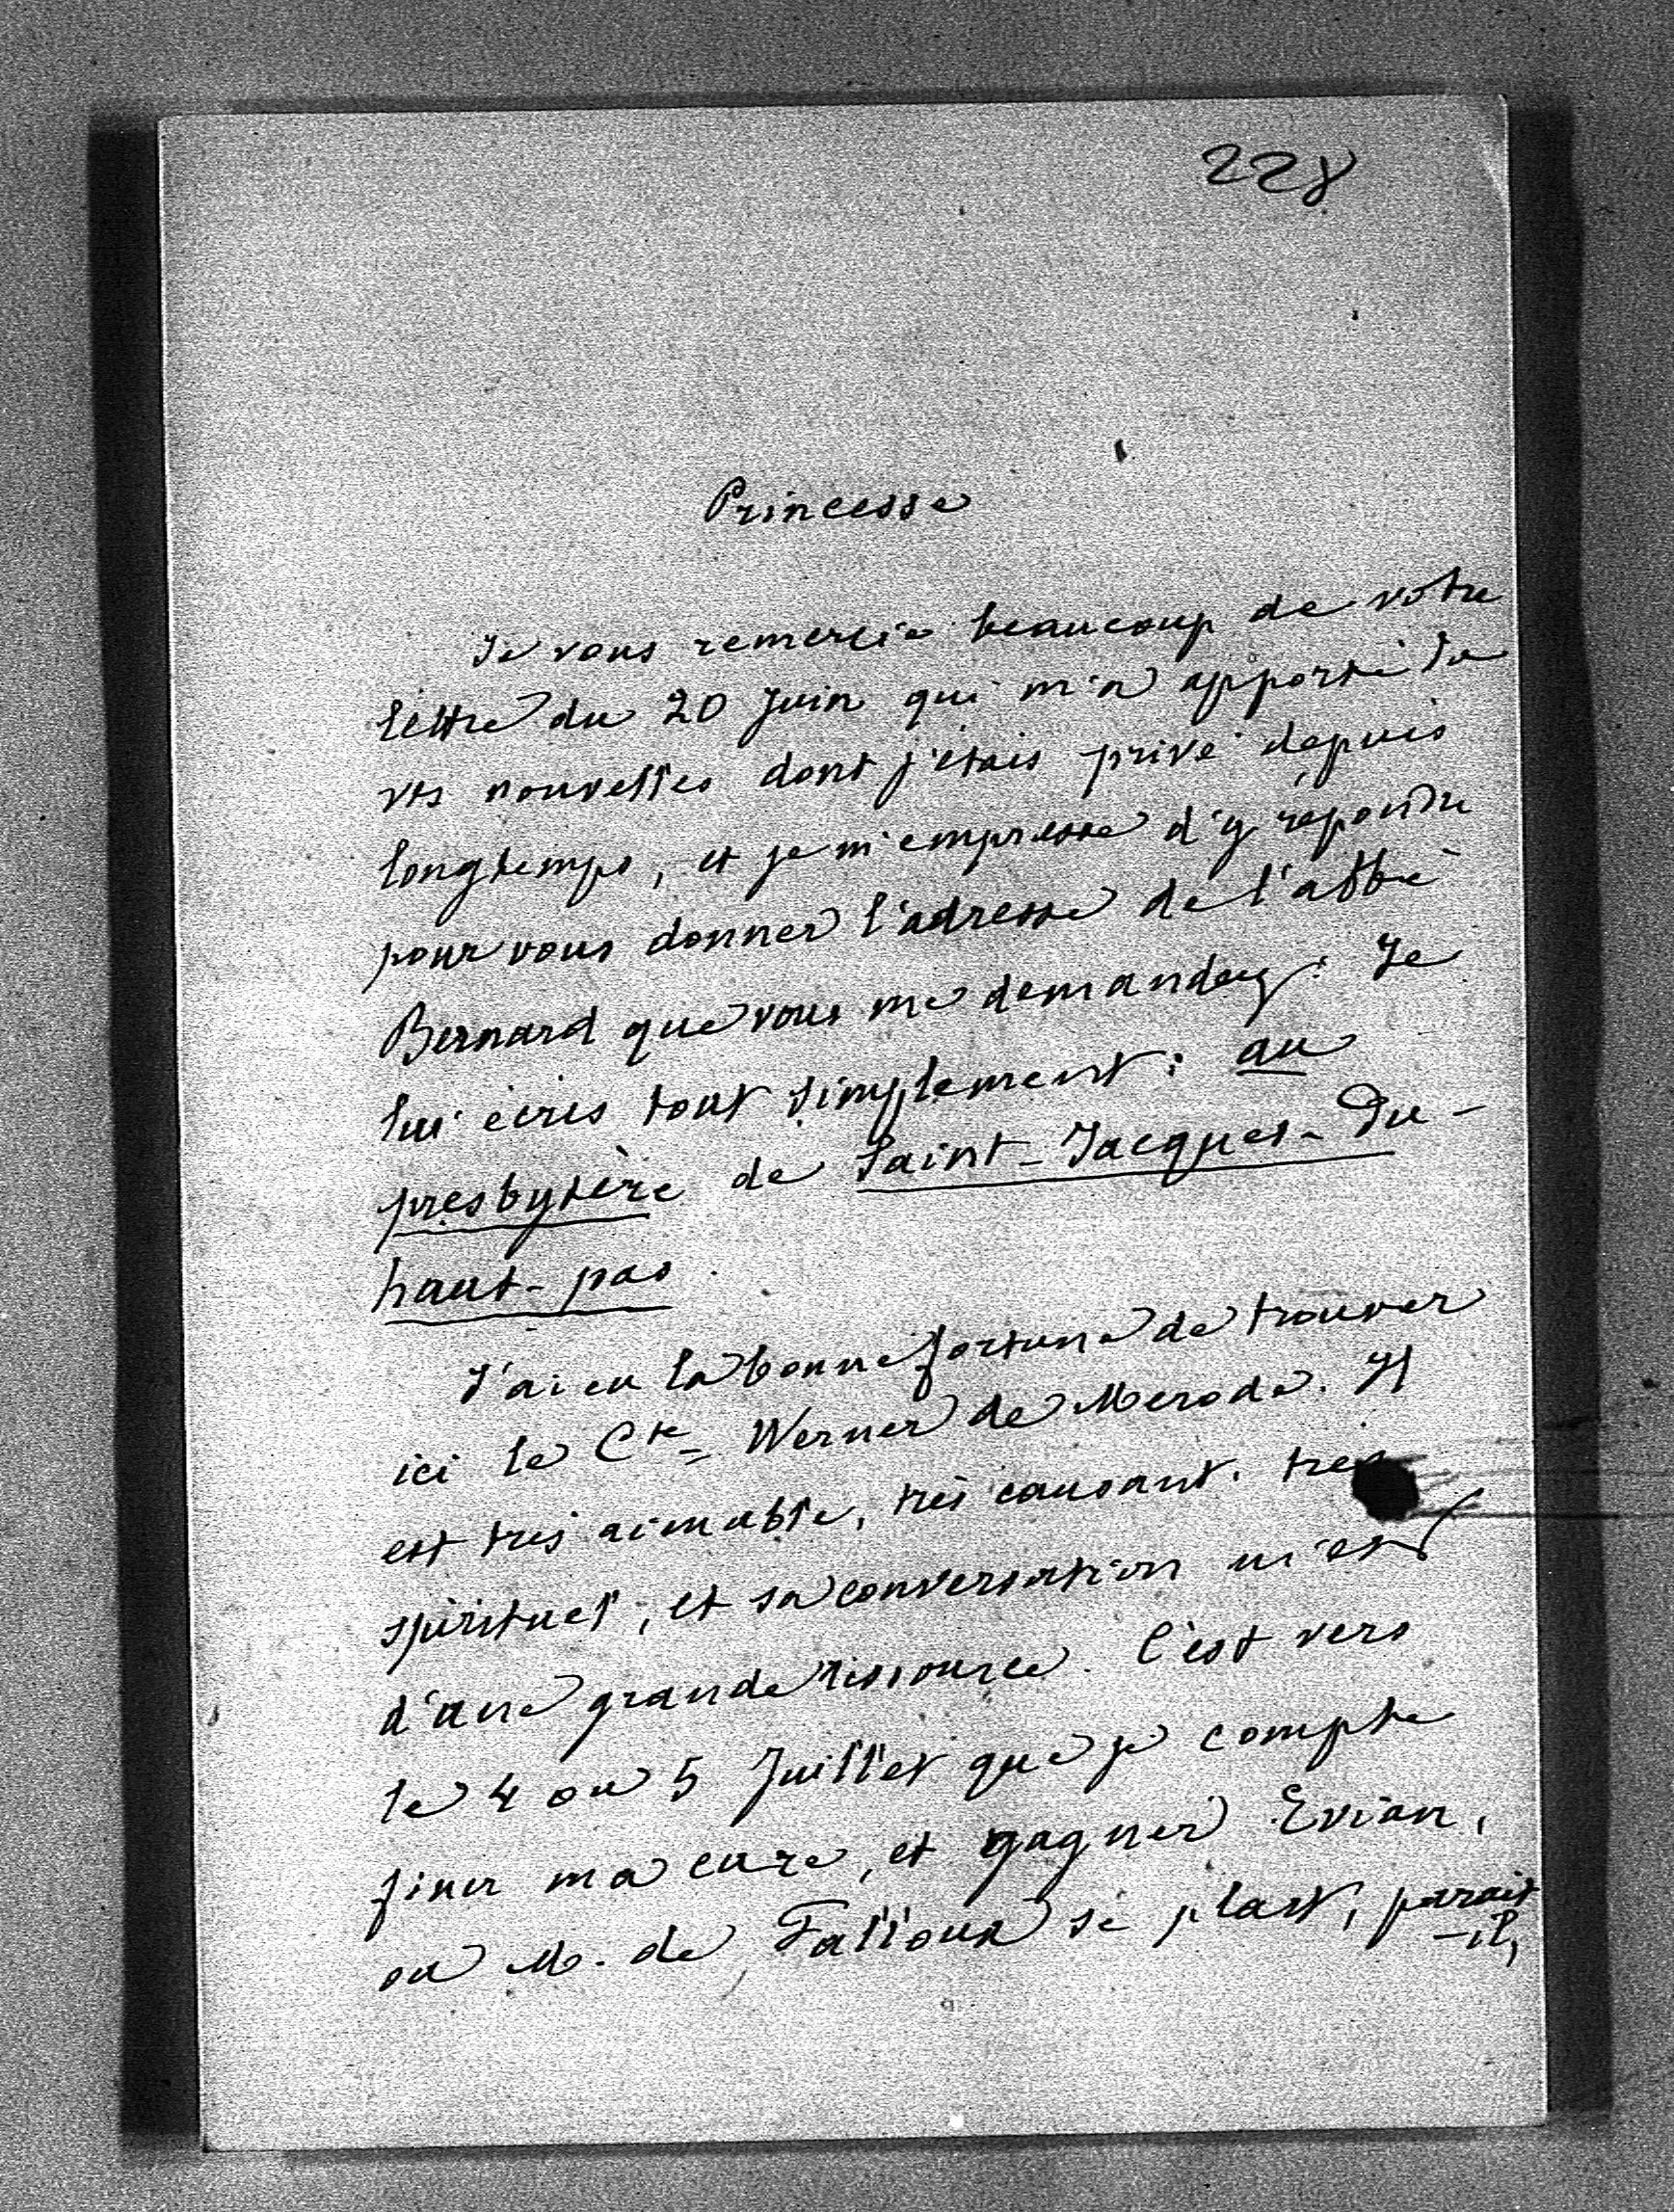 228
Princesse
Je vous remercie beaucoup de votre
lettre du 20 Juin qui m'a apporté de
vos nouvelles dont j'étais privé depuis
longtemps, et je m'empresse d'y répondre
pour vous donner l'adresse de l'abbé
Bernard que vous me demandez : Je
lui écris tout simplement : au
presbytère de Saint-Jacques-du-
haut-pas.
J'ai eu la bonne fortune de trouver
ici le Cte Werner de Merode. Il
est très aimable, très causant, très
spirituel, et sa conversation m'est
d'une grande ressource. C'est vers
le 4 ou 5 Juillet que je compte
finir ma cure, et gagner Evian,
ou M. de Falloux se plait, parait
-il,